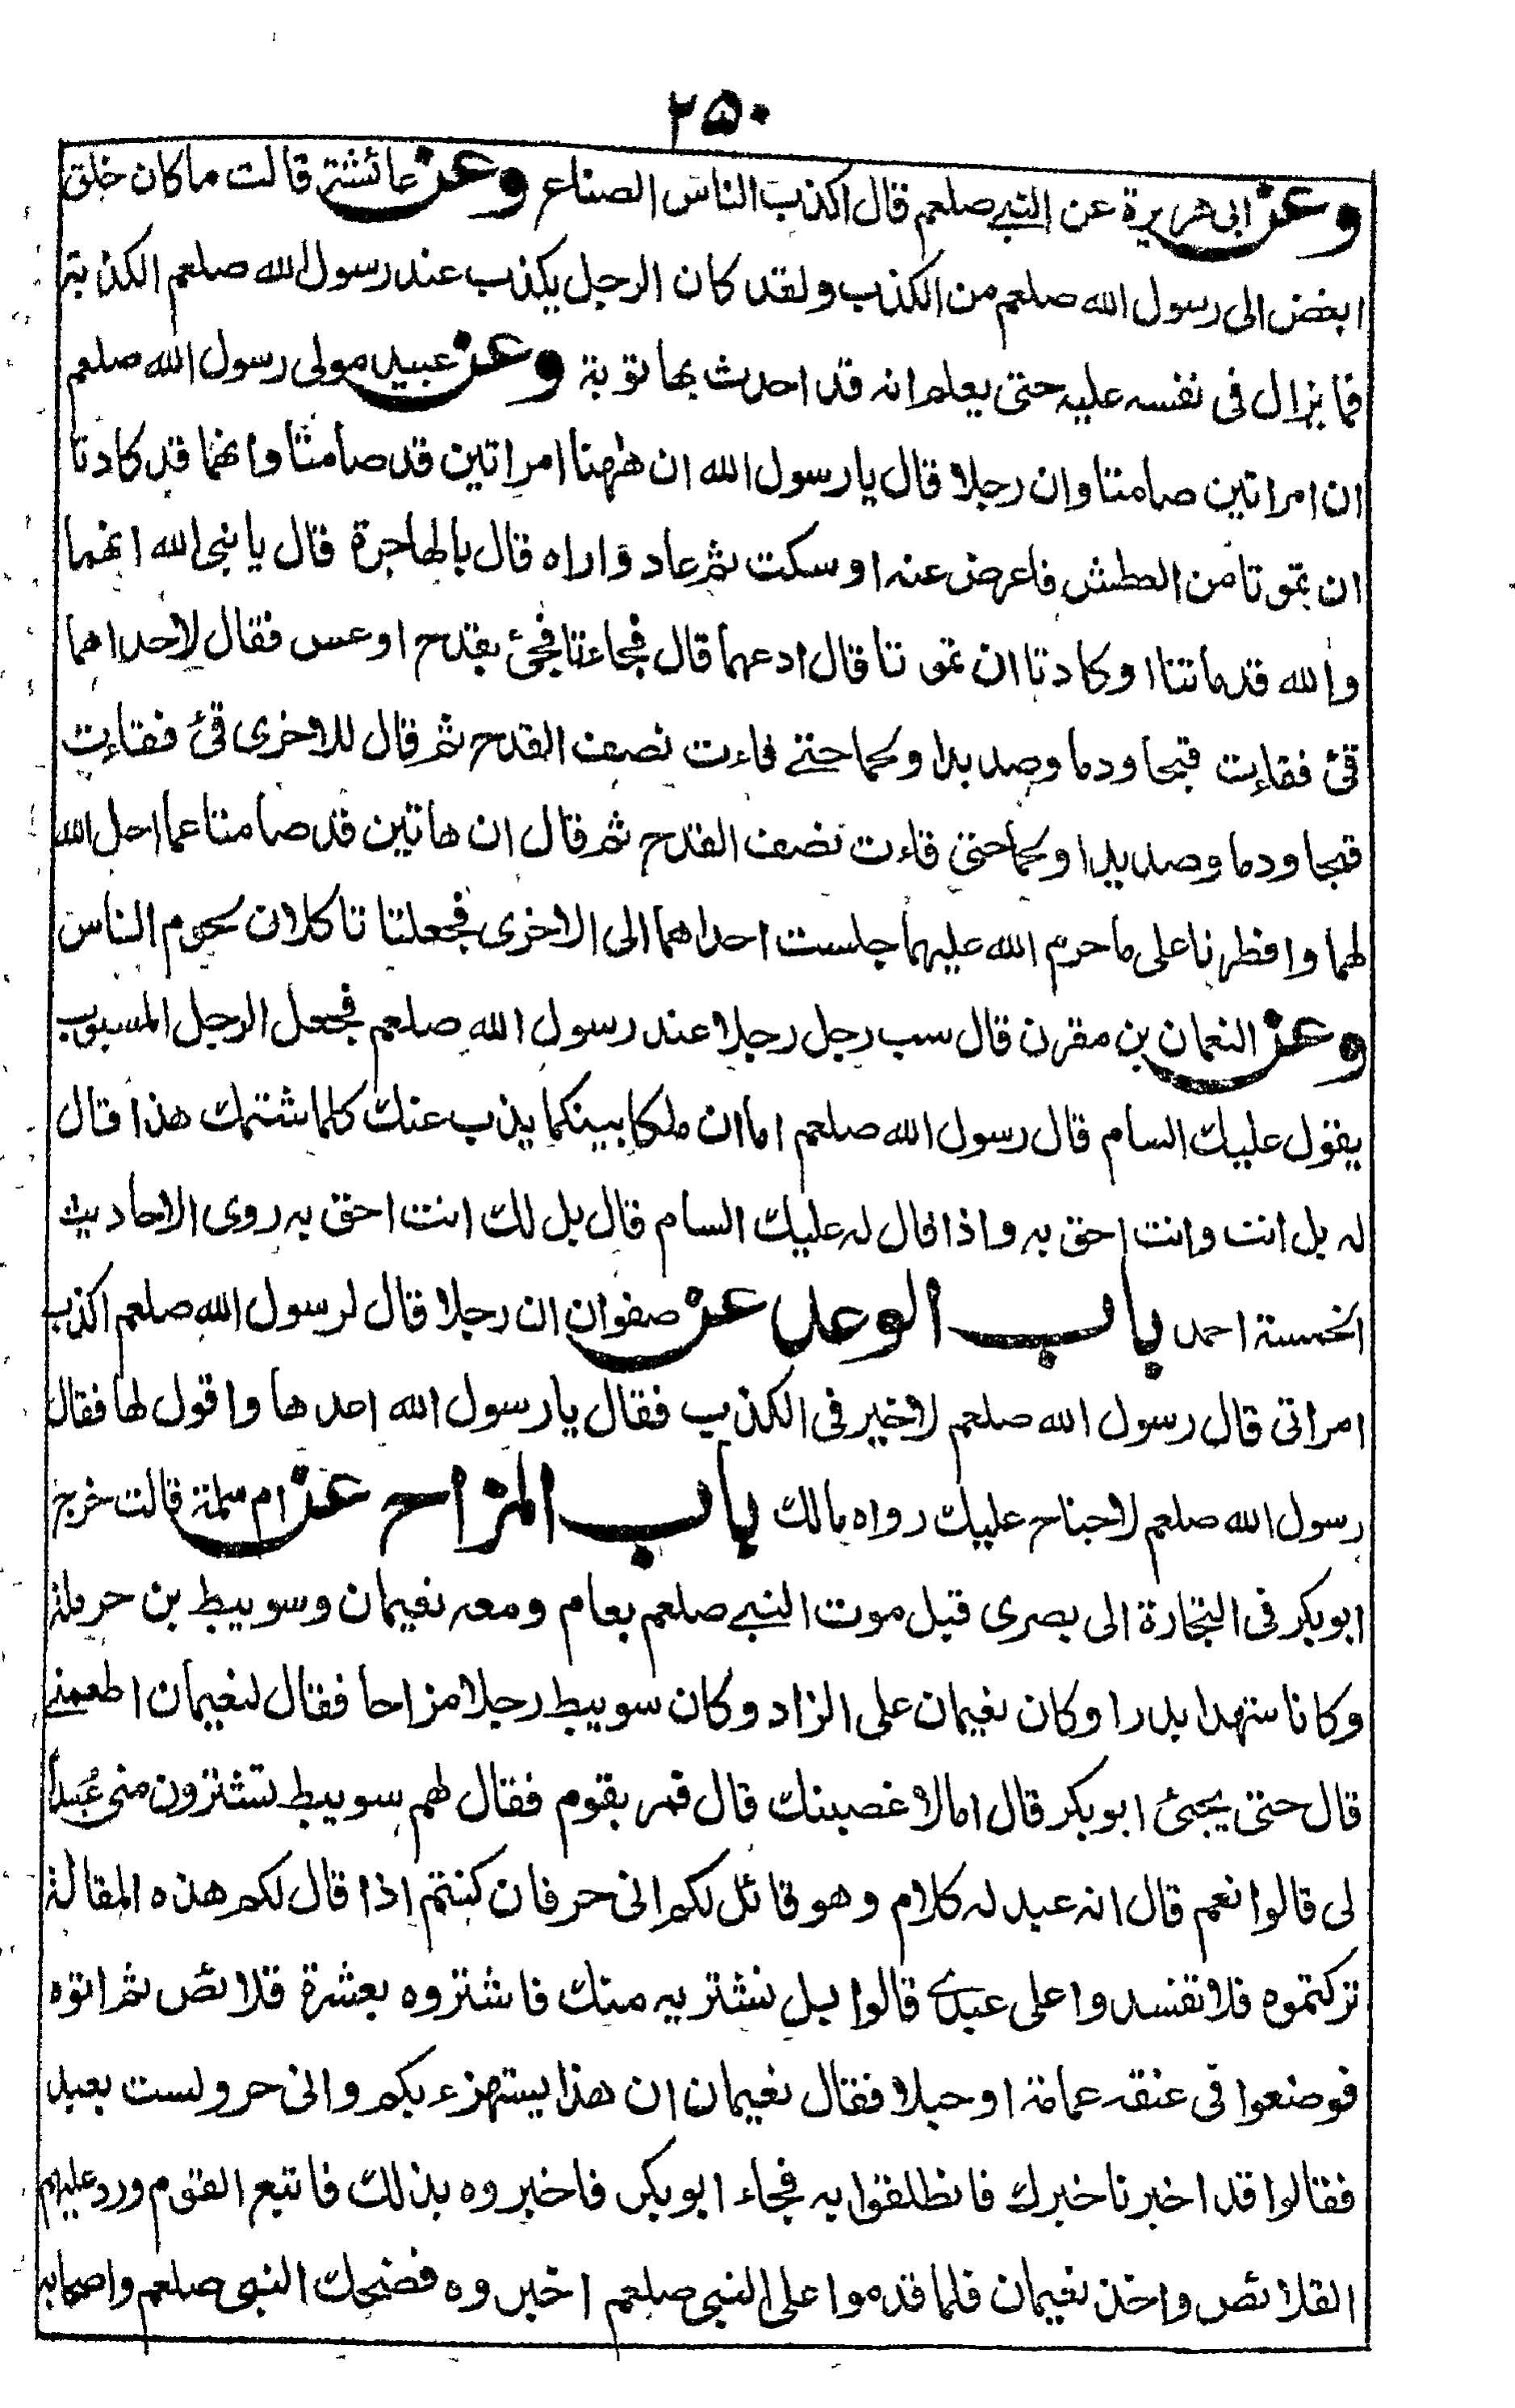 ٢٥٠
وعن ابى هريرة عن النبى صلعم قال اكذب الناس الصناع وعن عائشة قالت ما كان خلق
ابغض الى رسول الله صلعم من الكذب ولقد كان الرجل يكذب عند رسول الله صلعم الكذبة
فما يزال فى نفسه عليه حتى يعلم انه قد احدث بها توبة وعن عبيد مولى رسول الله صلعم
ان امراتين صامتا وان رجلا قال يا رسول الله ان ههنا امراتين قد صامتا وانهما قد كادتا
ان تموتا من العطش فاعرض عنه او سكت ثم عاد واراه قال بالهاجرة قال يا نبى الله انهما
والله قد ماتتا او كادتا ان تموتا قال ادعهما قال فجاءتا فجئ بقدح او عس فقال لاحداهما
قئ فقاءت قيحا ودما وصديدا ولحما حتى قاءت نصف القدح ثم قال للاخرى قئ فقاءت
قيحا ودما وصديدا ولحما حتى قاءت نصف القدح ثم قال ان هاتين قد صامتا عما احل الله
لهما وافطرتا على ما حرم الله عليهما جلست احداهما الى الاخرى فجعلتا تاكلان لحوم الناس
وعن النعمان بن مقرن قال سب رجل رجلا عند رسول الله صلعم فجعل الرجل المسبوب
يقول عليك السام قال رسول الله صلعم اما ان ملكا بينكما يذب عنك كلما شتمك هذا قال
له بل انت وانت احق به واذا قال له عليك السام قال بل لك انت احق به روى الاحاديث
الخمسة احمد باب الوعد عن صفوان ان رجلا قال لرسول الله صلعم اكذب
امراتى قال رسول الله صلعم لاخير فى الكذب فقال يا رسول الله اعدها واقول لها فقال
رسول الله صلعم لاجناح عليك رواه مالك باب المزاح عن ام سلمة قالت خرج
ابوبكر فى التجارة الى بصرى قبل موت النبى صلعم بعام ومعه نعيمان وسويبط بن حرملة
وكانا شهدا بدرا وكان نعيمان على الزاد وكان سويبط رجلا مزاحا فقال لنعيمان اطعمنى
قال حتى يجئ ابوبكر قال اما لاغضبنك قال فمر بقوم فقال لهم سويبط تشترون منى عبدا
لى قالوا نعم قال انه عبد له كلام وهو قائل لكم انى حر فان كنتم اذا قال لكم هذه المقالة
تركتموه فلا تفسدوا على عبدى قالوا بل نشتريه منك فاشتروه بعشرة قلائص ثم اتوه
فوضعوا فى عنقه عمامة او حبلا فقال نعيمان ان هذا يستهزء بكم وانى حر ولست بعبد
فقالوا قد اخبرنا خبرك فانطلقوا به فجاء ابوبكر فاخبروه بذلك فاتبع القوم ورد عليهم
القلائص واخذ نعيمان فلما قدموا على النبى صلعم اخبروه فضحك النبى صلعم واصحابه